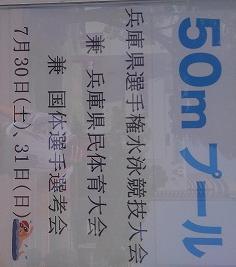 50m プール
兵庫県選手権水泳競技大会
兼 兵庫県民体育大会
兼 国体選手選考会
7月30日(土)、31日(日)